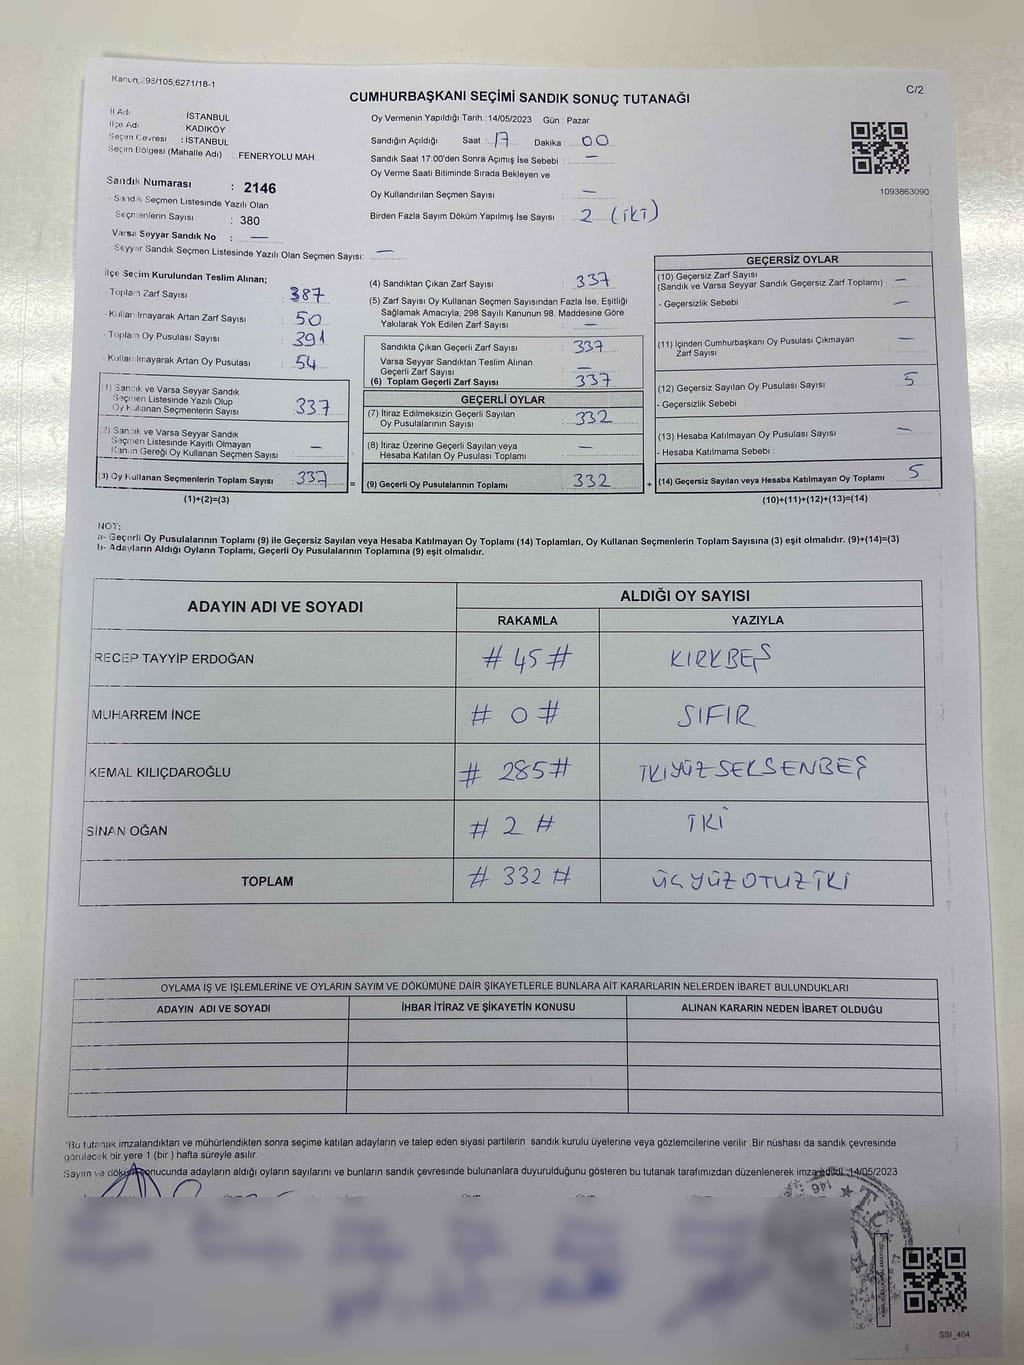 Kanun:298/105,6271/18-1
C/2
CUMHURBAŞKANI SEÇİMİ SANDIK SONUÇ TUTANAĞI
İl Adı : İSTANBUL
İlçe Adı : KADIKÖY
Seçim Çevresi : İSTANBUL
Seçim Bölgesi (Mahalle Adı) : FENERYOLU MAH.
Sandık Numarası : 2146
Sandık Seçmen Listesinde Yazılı Olan
Seçmenlerin Sayısı : 380
Varsa Seyyar Sandık No : —
Seyyar Sandık Seçmen Listesinde Yazılı Olan Seçmen Sayısı: —
Oy Vermenin Yapıldığı Tarih :14/05/2023 Gün : Pazar
Sandığın Açıldığı Saat : 17 Dakika : 00
Sandık Saat 17:00'den Sonra Açımış İse Sebebi : —
Oy Verme Saati Bitiminde Sırada Bekleyen ve
Oy Kullandırılan Seçmen Sayısı : —
Birden Fazla Sayım Döküm Yapılmış İse Sayısı : 2 (İKİ)
1093863090
İlçe Seçim Kurulundan Teslim Alınan;
Toplam Zarf Sayısı : 387
Kullanılmayarak Artan Zarf Sayısı : 50
Toplam Oy Pusulası Sayısı : 391
Kullanılmayarak Artan Oy Pusulası : 54
1) Sandık ve Varsa Seyyar Sandık
Seçmen Listesinde Yazılı Olup
Oy Kullanan Seçmenlerin Sayısı : 337
2) Sandık ve Varsa Seyyar Sandık
Seçmen Listesinde Kayıtlı Olmayan
Kanun Gereği Oy Kullanan Seçmen Sayısı : —
(3) Oy Kullanan Seçmenlerin Toplam Sayısı : 337 =
(1)+(2)=(3)
(4) Sandıktan Çıkan Zarf Sayısı : 337
(5) Zarf Sayısı Oy Kullanan Seçmen Sayısından Fazla İse, Eşitliği
Sağlamak Amacıyla; 298 Sayılı Kanunun 98. Maddesine Göre
Yakılarak Yok Edilen Zarf Sayısı : —
Sandıkta Çıkan Geçerli Zarf Sayısı : 337
Varsa Seyyar Sandıktan Teslim Alınan
Geçerli Zarf Sayısı : —
(6) Toplam Geçerli Zarf Sayısı : 337
GEÇERLİ OYLAR
(7) İtiraz Edilmeksizin Geçerli Sayılan
Oy Pusulalarının Sayısı : 332
(8) İtiraz Üzerine Geçerli Sayılan veya
Hesaba Katılan Oy Pusulası Toplamı : —
(9) Geçerli Oy Pusulalarının Toplamı : 332 +
GEÇERSİZ OYLAR
(10) Geçersiz Zarf Sayısı
(Sandık ve Varsa Seyyar Sandık Geçersiz Zarf Toplamı) : —
- Geçersizlik Sebebi : —
(11) İçinden Cumhurbaşkanı Oy Pusulası Çıkmayan
Zarf Sayısı : —
(12) Geçersiz Sayılan Oy Pusulası Sayısı : 5
- Geçersizlik Sebebi :
(13) Hesaba Katılmayan Oy Pusulası Sayısı : —
- Hesaba Katılmama Sebebi :
(14) Geçersiz Sayılan veya Hesaba Katılmayan Oy Toplamı : 5
(10)+(11)+(12)+(13)=(14)
NOT:
a- Geçerli Oy Pusulalarının Toplamı (9) ile Geçersiz Sayılan veya Hesaba Katılmayan Oy Toplamı (14) Toplamları, Oy Kullanan Seçmenlerin Toplam Sayısına (3) eşit olmalıdır. (9)+(14)=(3)
b- Adayların Aldığı Oyların Toplamı, Geçerli Oy Pusulalarının Toplamına (9) eşit olmalıdır.
ADAYIN ADI VE SOYADI
ALDIĞI OY SAYISI
RAKAMLA YAZIYLA
RECEP TAYYİP ERDOĞAN # 45 # KIRKBEŞ
MUHARREM İNCE # 0 # SIFIR
KEMAL KILIÇDAROĞLU # 285 # İKİYÜZSEKSENBEŞ
SİNAN OĞAN # 2 # İKİ
TOPLAM # 332 # ÜÇYÜZOTUZİKİ
OYLAMA İŞ VE İŞLEMLERİNE VE OYLARIN SAYIM VE DÖKÜMÜNE DAİR ŞİKAYETLERLE BUNLARA AİT KARARLARIN NELERDEN İBARET BULUNDUKLARI
ADAYIN ADI VE SOYADI İHBAR İTİRAZ VE ŞİKAYETİN KONUSU ALINAN KARARIN NEDEN İBARET OLDUĞU
*Bu tutanak imzalandıktan ve mühürlendikten sonra seçime katılan adayların ve talep eden siyasi partilerin sandık kurulu üyelerine veya gözlemcilerine verilir .Bir nüshası da sandık çevresinde
görülecek bir yere 1 (bir ) hafta süreyle asılır.
Sayım ve döküm sonucunda adayların aldığı oyların sayılarını ve bunların sandık çevresinde bulunanlara duyurulduğunu gösteren bu tutanak tarafımızdan düzenlenerek imza edildi. 14/05/2023
146 ★ T.C.
SSİ_404